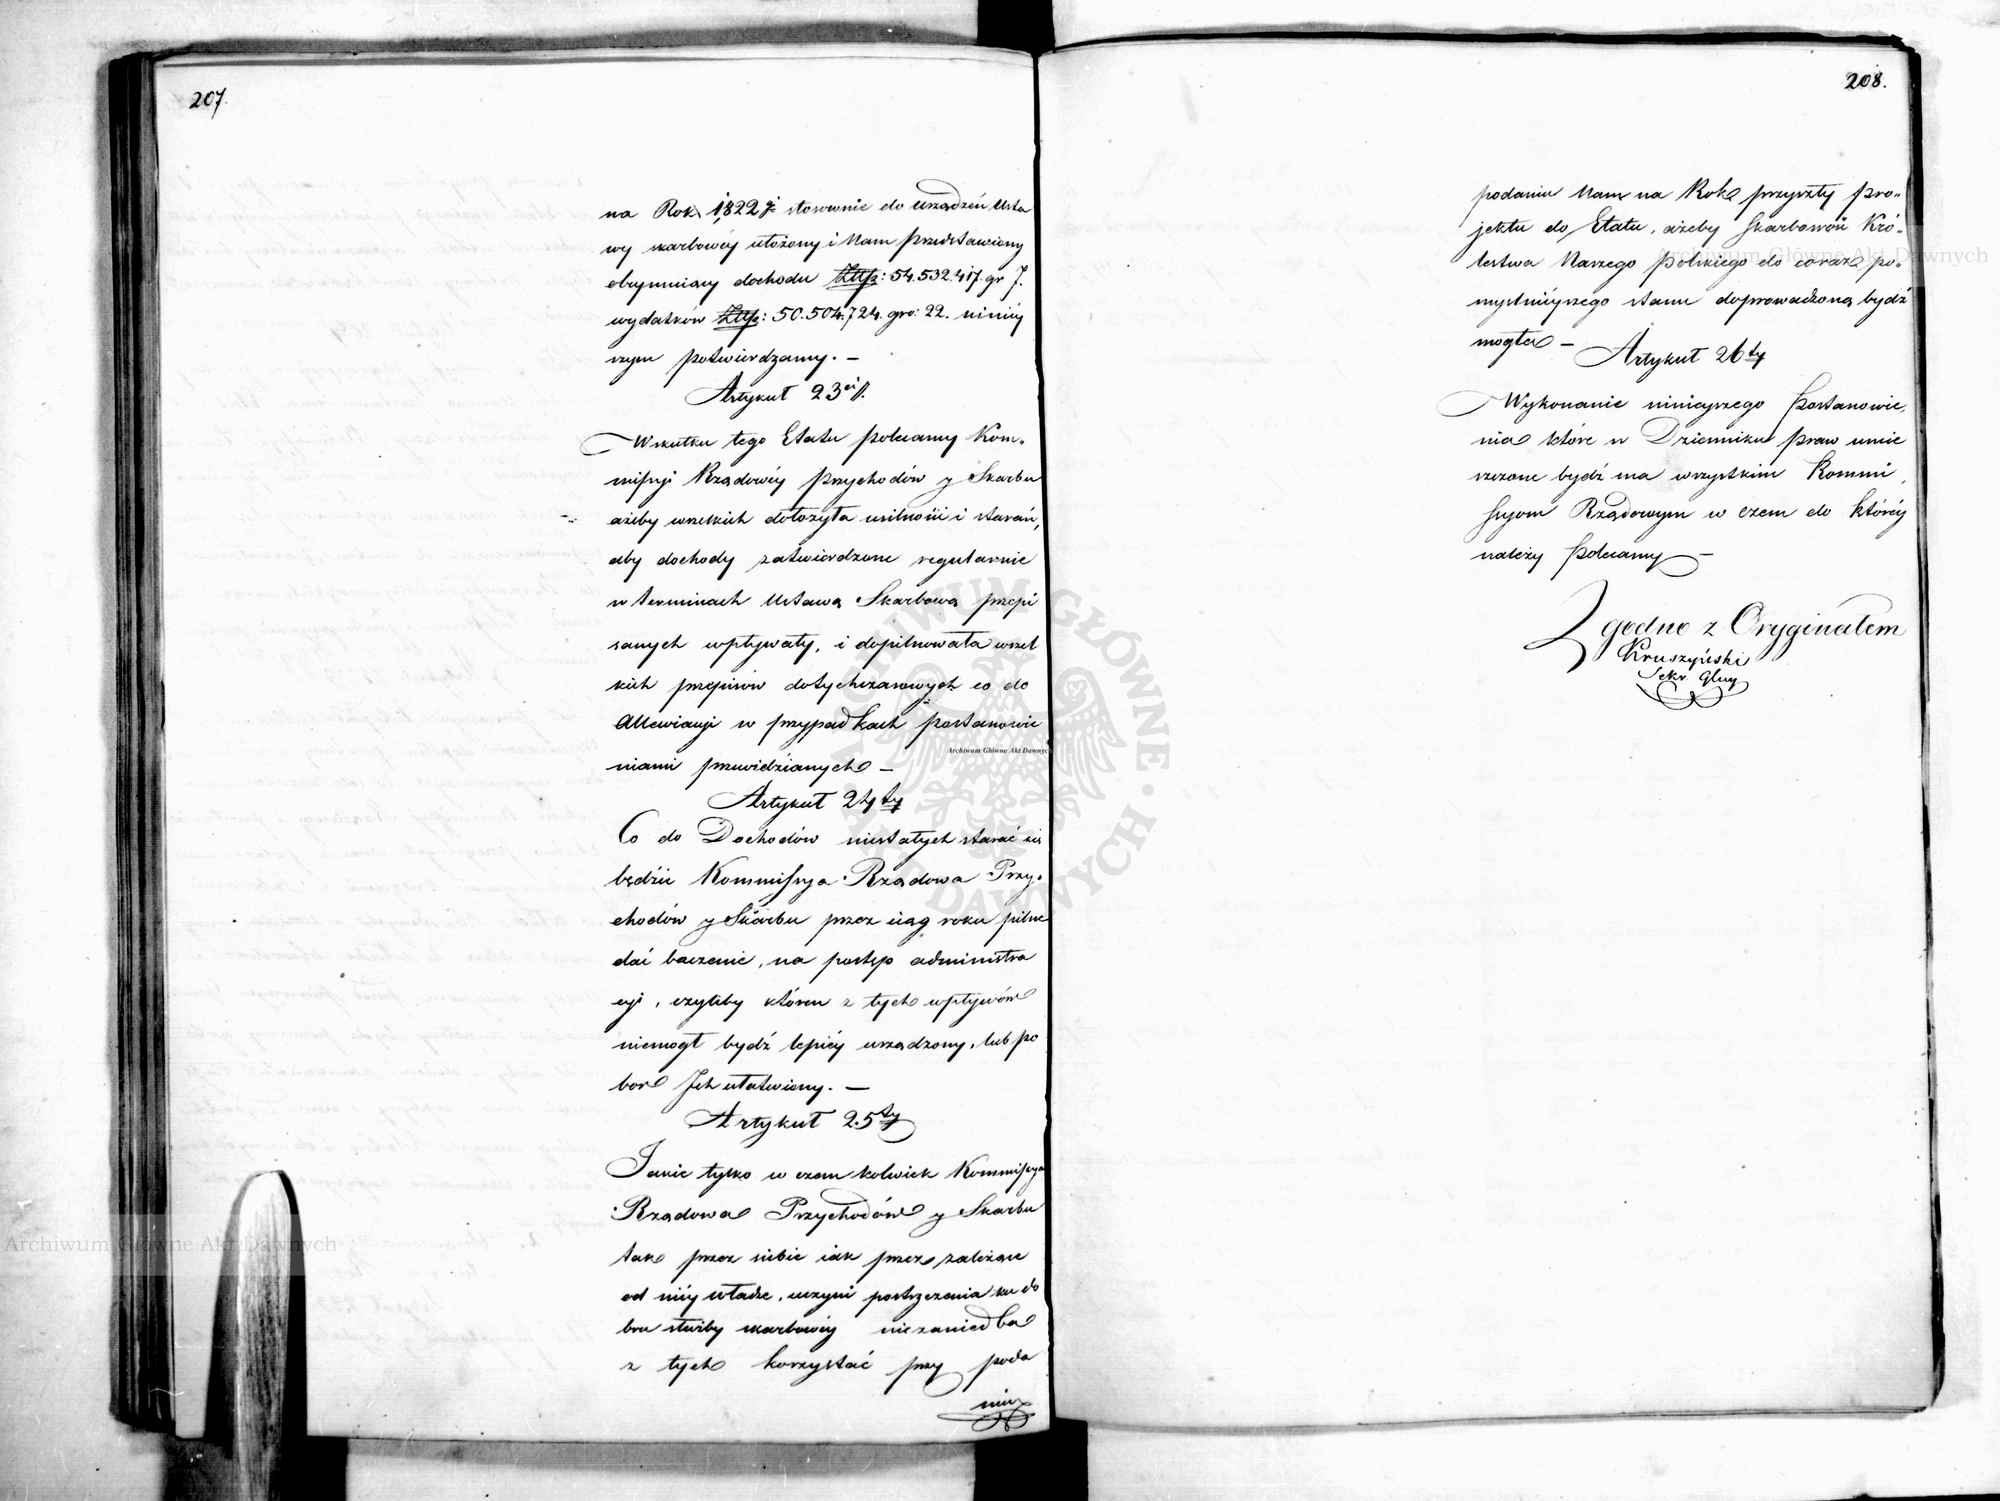 207.
na Rok 1822gi stosownie do urządzeń Usta
wy skarbowéy ułożony i Nam przedstawiony
obeymuiący dochodu Złłp: 54.532.417. gr 7.
wydatków Złłp: 50.504.724. gro: 22. niniéy
szym potwierdzamy. —
Artykuł 23ci
Wskutku tego Etatu polecamy Kom„
missyi Rządowéy Przychodów y Skarbu
ażeby wszelkich dołożyła usilności i starań,
aby dochody zatwierdzone regularnie
w terminach Ustawą Skarbową przepi
sanych wpływały, i dopilnowała wszel
kich przepisów dotychczasowych co do
Allewiacyi w przypadkach postanowie
niami przewidzianych —
Artykuł 24ty
Co do Dochodów niestałych starać się
będzie Kommissya Rządowa Przy„
chodów y Skarbu przez ciąg roku pilne
dać baczenie, na postęp administra
cyi, czyliby któren z tych wpływów
niemogł bydź lepiéy urządzony, lub po
bor Jch ułatwiony. —
Artykuł 25ty
Jakie tylko w czem kolwiek Kommissya
Rządowa Przychodów y Skarbu
tak przez siebie iak przez zależące
od niéy władze, uczyni postrzeżenia ku do
bru służby skarbowéy niezaniedba
z tych korzystać przy poda
niu
208.
podaniu Nam na Rok przyszły pro„
jektu do Etatu, ażeby Skarbowość Kró„
lestwa Naszego Polskiego do coraz po„
myślniéyszego stanu doprowadzoną bydź
mogła —
Artykuł 26ty
Wykonanie ninieyszego Postanowie„
nia które w Dzienniku praw umie
szczone bydź ma wszystkim Kommi„
ssyom Rządowym w czem do któréy
należy polecamy —
Zgodno z Oryginałem
Kruszyński
Sekr. Głny
Archiwum Główne Akt Dawnych
Archiwum Główne Akt Dawnych
Archiwum Główne Akt Dawnych
ARCHIWUM GŁÓWNE AKT DAWNYCH